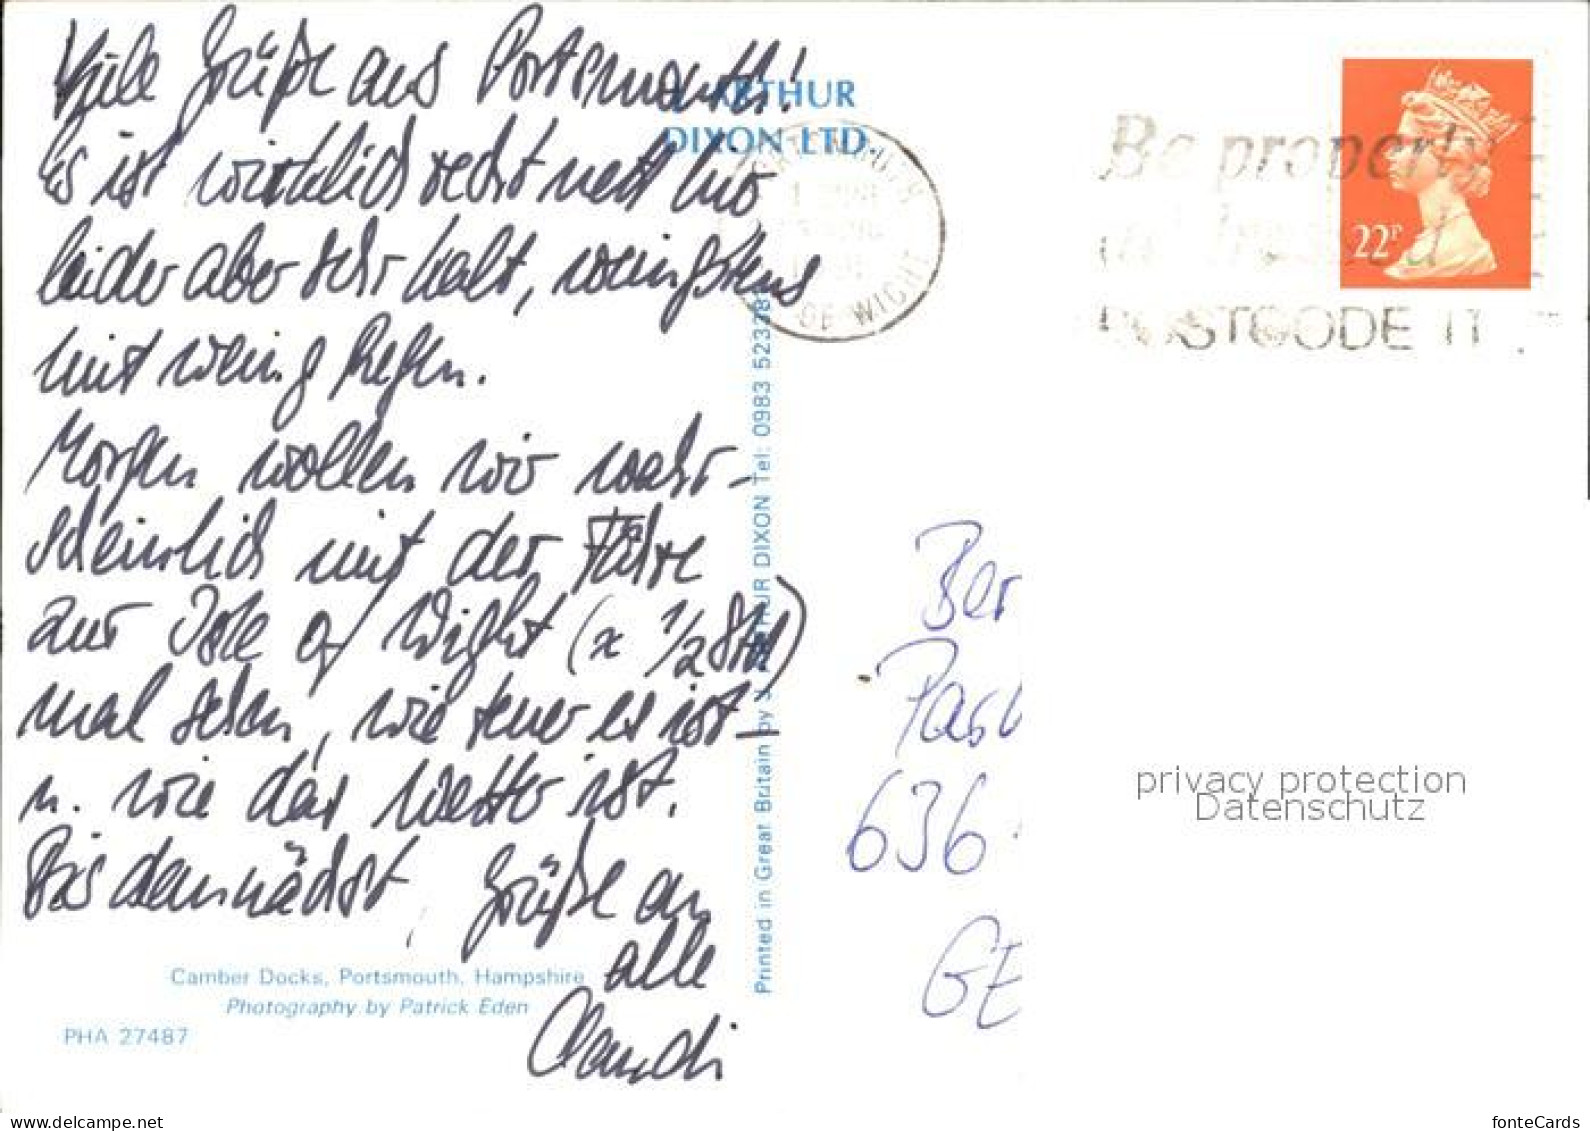 Viele Grüße aus Portsmouth!
Es ist wirklich recht nett hier
leider aber sehr kalt, wenigstens
mit wenig Regen.
Morgen wollen wir wahr-
scheinlich mit der Fähre
zur Isle of Wight (x 1/2 Std)
mal sehen, wie teuer es ist -
u. wie das Wetter ist.
Bis demnächst, Grüße an
alle
Claudi
Camber Docks, Portsmouth, Hampshire
Photography by Patrick Eden
PHA 27487
ARTHUR
DIXON LTD.
Printed in Great Britain by J. ARTHUR DIXON Tel: 0983 523381
OF WIGHT
Be properly
addressed
POSTCODE IT
22P
Ber
Past
636
GE
privacy protection
Datenschutz
www.delcampe.net
fonteCards